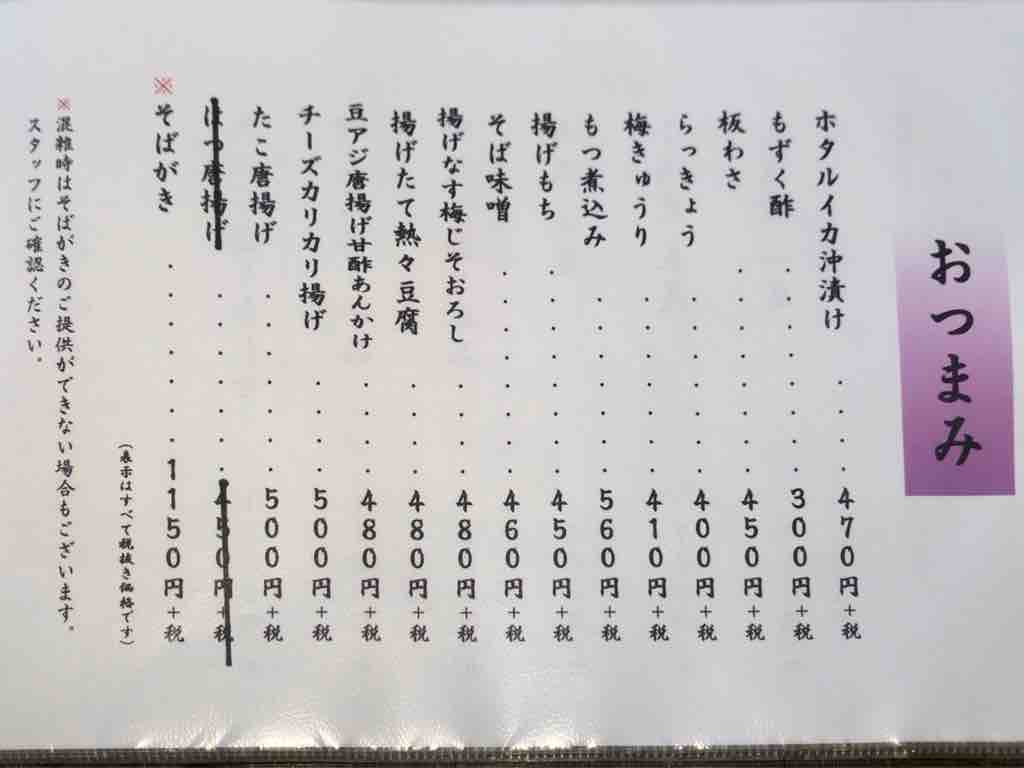 おつまみ
ホタルイカ沖漬け・・・・470円+税
もずく酢・・・・・・・・300円+税
板わさ・・・・・・・・450円+税
らっきょう・・・・・・・400円+税
梅きゅうり・・・・・・・410円+税
もつ煮込み・・・・・・・560円+税
揚げもち・・・・・・・・450円+税
そば味噌・・・・・・・・460円+税
揚げなす梅じそおろし・・・・480円+税
揚げたて熱々豆腐・・・・480円+税
豆アジ唐揚げ甘酢あんかけ・・・・480円+税
チーズカリカリ揚げ・・・・500円+税
たこ唐揚げ・・・・・・・500円+税
はつ唐揚げ・・・・・・・450円+税
※そばがき・・・・・・・1150円+税
(表示はすべて税抜き価格です)
※混雑時はそばがきのご提供ができない場合もございます。
スタッフにご確認ください。